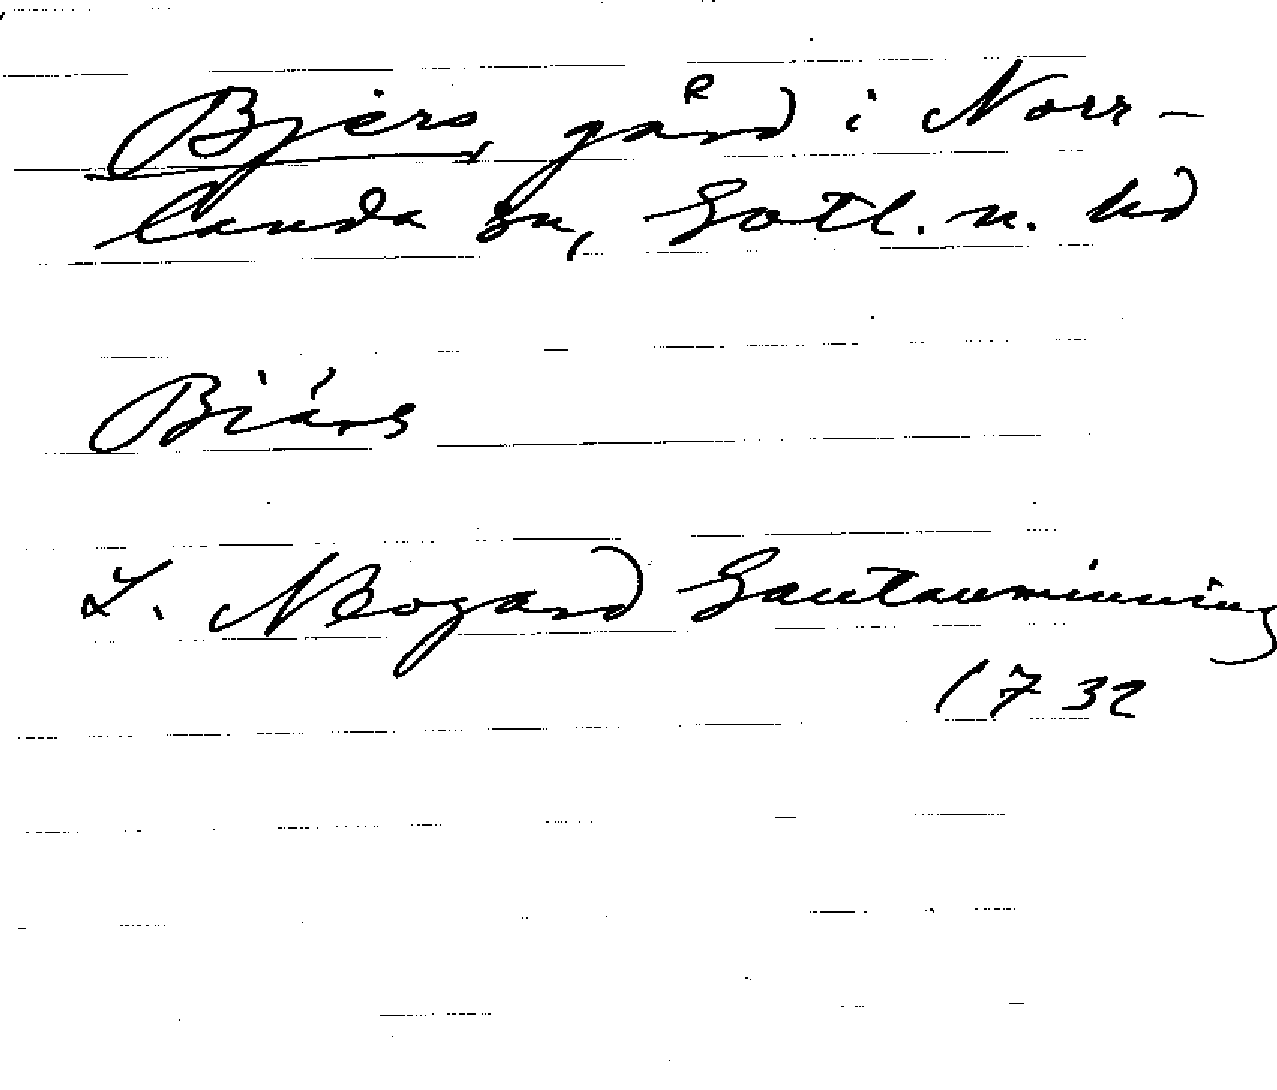 Bjers, gård i Norr-
landa sn, Gotl. n. hd
Biärs
L. N Bogard Gautauminning
1732